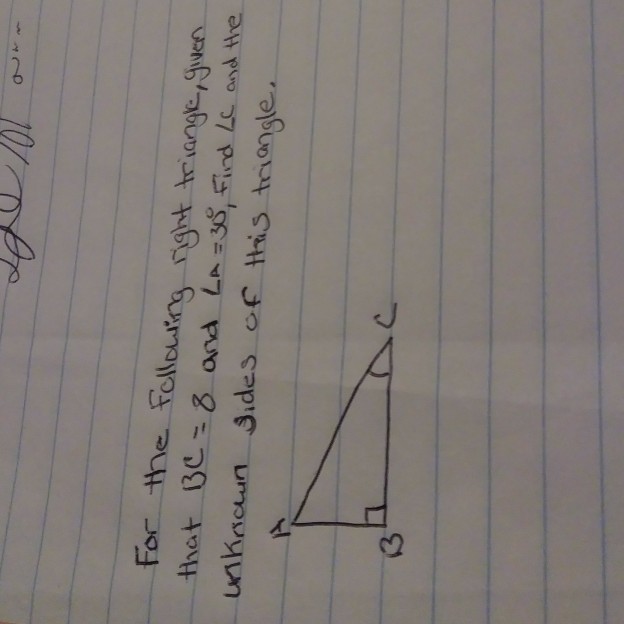 For the following right triangle, given
that BC = 8 and ∠A = 30°, Find ∠C and the
unknown sides of this triangle.
A
B
C